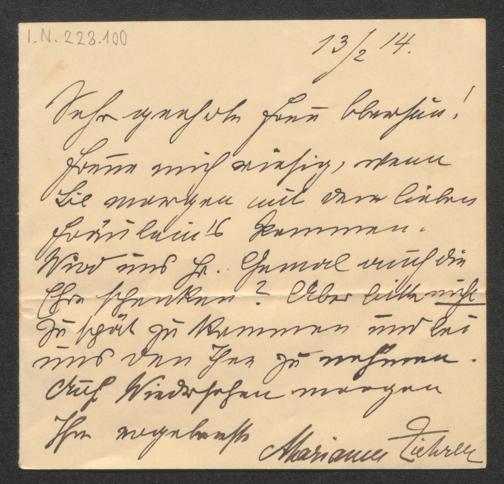 I.N. 223.100
13/2 14.
Sehr geehrte Frau Oberhau!
Freue mich riesig, wenn
Sie morgen mit den lieben
Fräulein's kommen.
Wird uns Hr. Gemal auch die
Ehre schenken? Aber bitte nicht
zu spät zu kommen und bei
uns den Thee zu nehmen.
Auf Wiedersehen morgen
Ihre ergebenste
Marianne